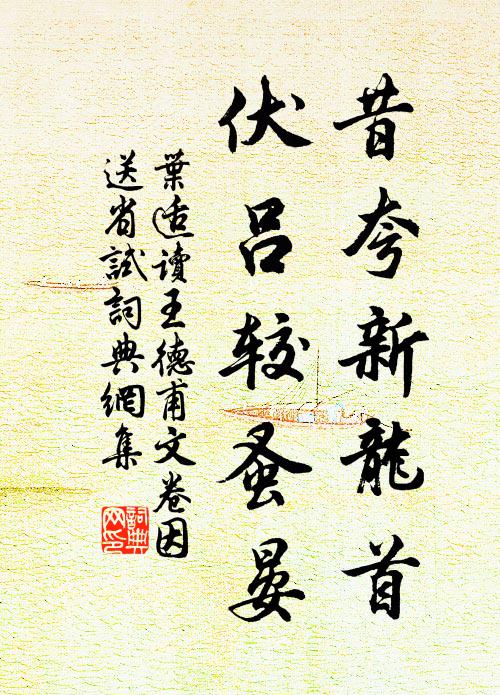 昔夸新龍首
伏吕较蚤晏
葉适讀王德甫文卷因
送省試詞典網集
詞典网印